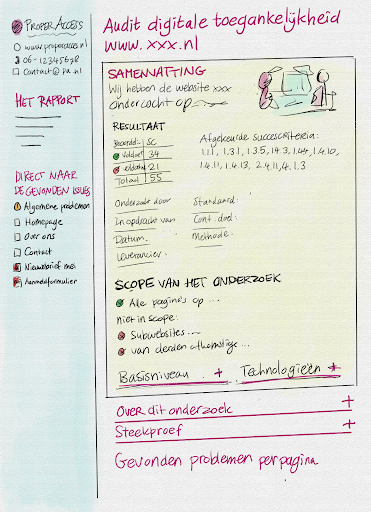 Proper Access
www.properacces.nl
06-12345678
Contact@pa.nl
Het rapport
Direct naar
de gevonden issues
Algemene problemen
Homepage
Over ons
Contact
Nieuwsbrief mei
Aanmeldformulier
Audit digitale toegankelijkheid
www.xxx.nl
Samenvatting
Wij hebben de website xxx
onderzocht op
Resultaat
Beoordeeld: SC
Voldoet 34
Voldoet niet 21
Totaal 55
Afgekeurde succescriteria:
1.1.1, 1.3.1, 1.3.5, 1.4.3, 1.4.4, 1.4.10,
1.4.11, 1.4.13, 2.4.11, 4.1.3
Onderzocht door
In opdracht van
Datum
Leverancier:
Standaard:
Conf. doel:
Methode:
Scope van het onderzoek
Alle pagina's op ...
niet in scope:
Subwebsites ...
van derden afkomstige ...
Basisniveau +
Technologieën +
Over dit onderzoek +
Steekproef +
Gevonden problemen per pagina